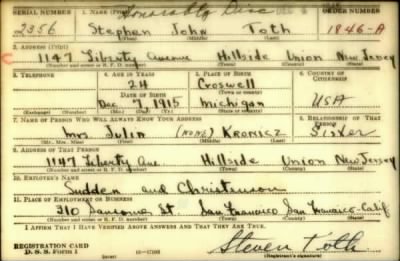 SERIAL NUMBER 1. NAME (Print) Honorably Disc ORDER NUMBER
2356 Stephen John Toth 1846-A
(First) (Middle) (Last)
2. ADDRESS (Print)
1147 Liberty Avenue Hillside Union New Jersey
(Number and street or R. F. D. number) (Town) (County) (State)
3. TELEPHONE 4. AGE IN YEARS 5. PLACE OF BIRTH 6. COUNTRY OF CITIZENSHIP
24 Croswell
DATE OF BIRTH
Dec 7, 1915 Michigan USA
(Exchange) (Number) (Mo.) (Day) (Yr.) (State or country)
7. NAME OF PERSON WHO WILL ALWAYS KNOW YOUR ADDRESS 8. RELATIONSHIP OF THAT PERSON
Mrs Julia (NONE) Sister
(Mr., Mrs., Miss) (First) (Middle) (Last)
9. ADDRESS OF THAT PERSON
1147 Liberty Ave Hillside Union New Jersey
(Number and street or R. F. D. number) (Town) (County) (State)
10. EMPLOYER'S NAME
Sudden and Christenson
11. PLACE OF EMPLOYMENT OR BUSINESS
310 Sansome St. San Francisco San Francisco Calif
(Number and street or R. F. D. number) (Town) (County) (State)
I AFFIRM THAT I HAVE VERIFIED ABOVE ANSWERS AND THAT THEY ARE TRUE.
REGISTRATION CARD Steven Toth
D. S. S. Form 1 (over)